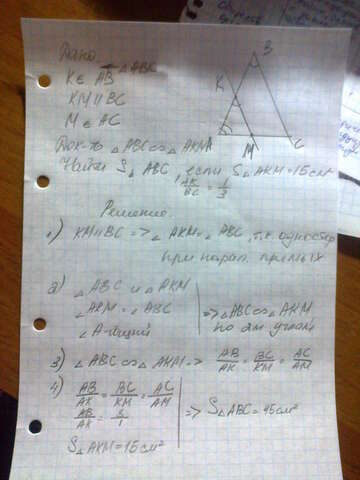 Дано:
△ABC
K ∈ AB
KM || BC
M ∈ AC
Док-ть △ABC ∞ △AKM
Найти S△ABC, если S△AKM = 15 см²
AK/BC = 1/3
B
K
M
C
Решение.
1) KM || BC => ∠AKM = ∠ABC, т.к. одностор
при парал. прямых
2) △ABC и △AKM
∠AKM = ∠ABC
∠A-общий
=> △ABC ∞ △AKM
по 2м углам
3) △ABC ∞ △AKM => AB/AK = BC/KM = AC/AM
4) AB/AK = BC/KM = AC/AM
AB/AK = 3/1
S△AKM = 15 см²
=> S△ABC = 45 см²